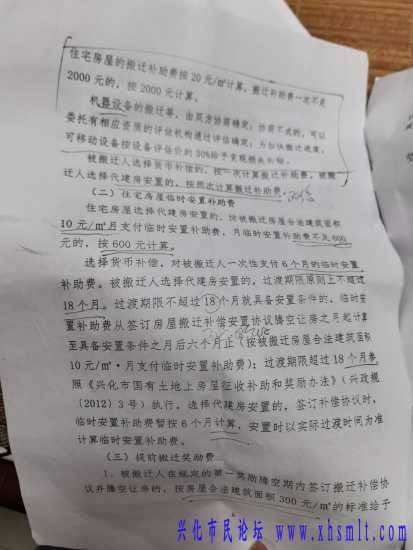 住宅房屋的搬迁补助费按20元/㎡计算，搬迁补助费一次不足
2000元的，按2000元计算。
机器设备的搬迁等，由双方协商确定；协商不成的，可以
委托有相应资质的评估机构通过评估确定；为加快搬迁进度，
可移动设备按设备评估价的30%给予变现损失补贴。
被搬迁人选择货币补偿的，按一次计算搬迁补助费，被搬
迁人选择代建房安置的，按两次计算搬迁补助费。
（二）住宅房屋临时安置补助费
住宅房屋选择代建房安置的，按被搬迁房屋合法建筑面积
10元/㎡·月支付临时安置补助费，月临时安置补助费不足600
元的，按600元计算。
选择货币补偿，对被搬迁人一次性支付6个月的临时安置
补助费。被搬迁人选择代建房安置的，过渡期限原则上不超过
18个月。过渡期限不超过18个月就具备安置条件的，临时安
置补助费从签订房屋搬迁补偿安置协议腾空让房之月起计算
至具备安置条件之月后六个月止（按被搬迁房屋合法建筑面积
10元/㎡·月支付临时安置补助费）；过渡期限超过18个月参
照《兴化市国有土地上房屋征收补助和奖励办法》（兴政规
〔2012〕3号）执行。选择代建房安置的，签订补偿协议时，
临时安置补助费暂按6个月计算，安置时以实际过渡时间为准
计算临时安置补助费。
（三）提前搬迁奖励费
1、被搬迁人在规定的第一奖励腾空期内签订搬迁补偿协
议并腾空让房的，按房屋合法建筑面积300元/㎡的标准给予
兴化市民论坛 www.xhsmlt.com